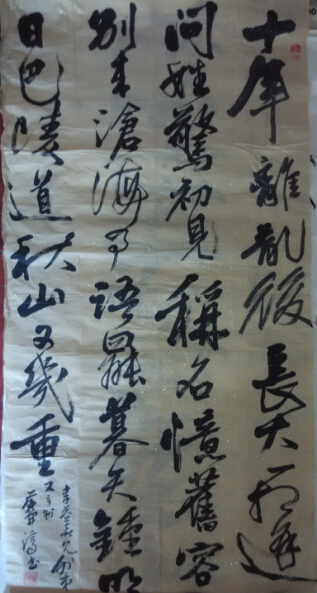 十年離亂後長大一相逢
問姓驚初見稱名憶舊容
別來滄海事語罷暮天鐘明
日巴陵道秋山又幾重